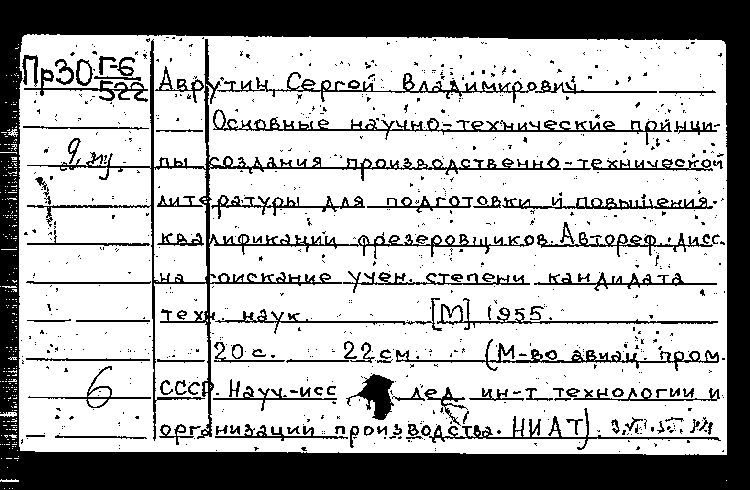 Пр30 Г-6/522
Аврутин, Сергей Владимирович
Основные научно-технические принци-
пы создания производственно-технической
литературы для подготовки и повышения
квалификации фрезеровщиков. Автореф. дисс.
на соискание учен. степени кандидата
техн. наук. [М], 1955.
20 с. 22 см. (М-во авиац. пром.
6 СССР. Науч.-исс лед. ин-т технологии и
организации производства. НИАТ).